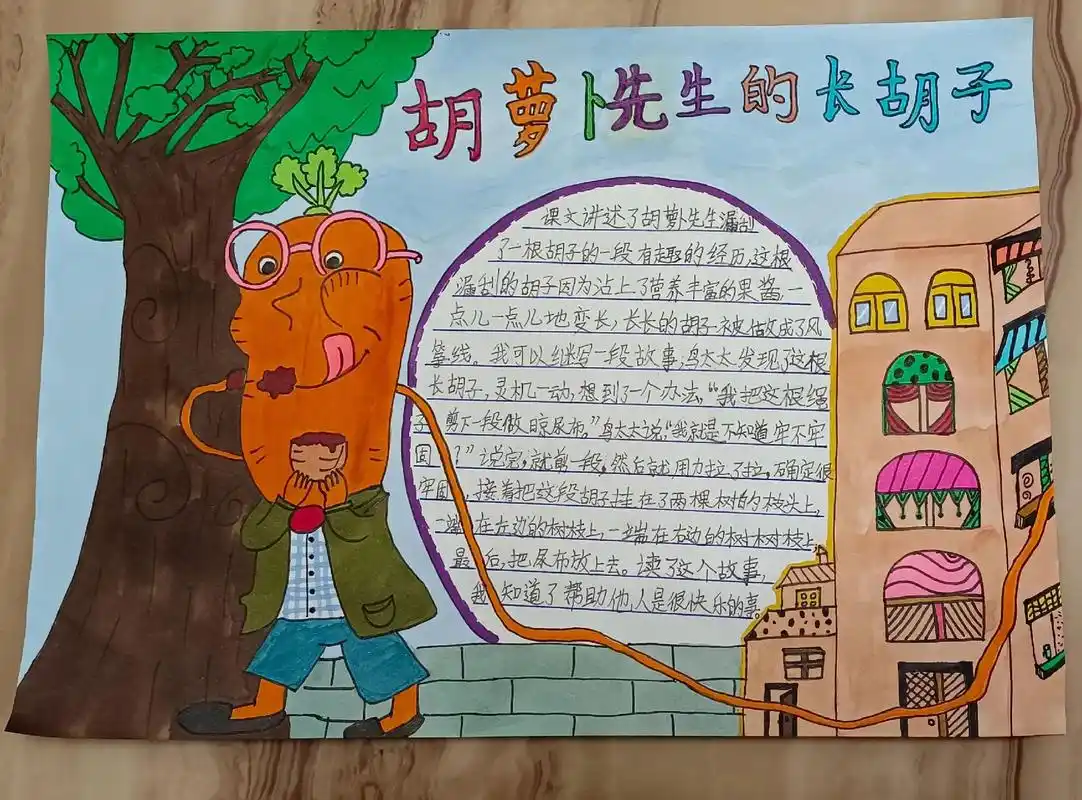 胡萝卜先生的长胡子
课文讲述了胡萝卜先生漏刮
了一根胡子的一段有趣的经历,这根
漏刮的胡子因为沾上了营养丰富的果酱,一
点儿一点儿地变长,长长的胡子被做成了风
筝线。我可以继写一段故事,鸟太太发现了这根
长胡子,灵机一动,想到了一个办法,“我把这根绳
子剪下一段做晾尿布。”鸟太太说,“我就是不知道牢不牢
固?”说完,就剪一段,然后就用力拉了拉,确定很
牢固,接着把这段胡子挂在了两棵树的枝头上,
一端在左边的树枝上,一端在右边的树树枝上
最后,把尿布放上去。读了这个故事,
我知道了帮助他人是很快乐的事。